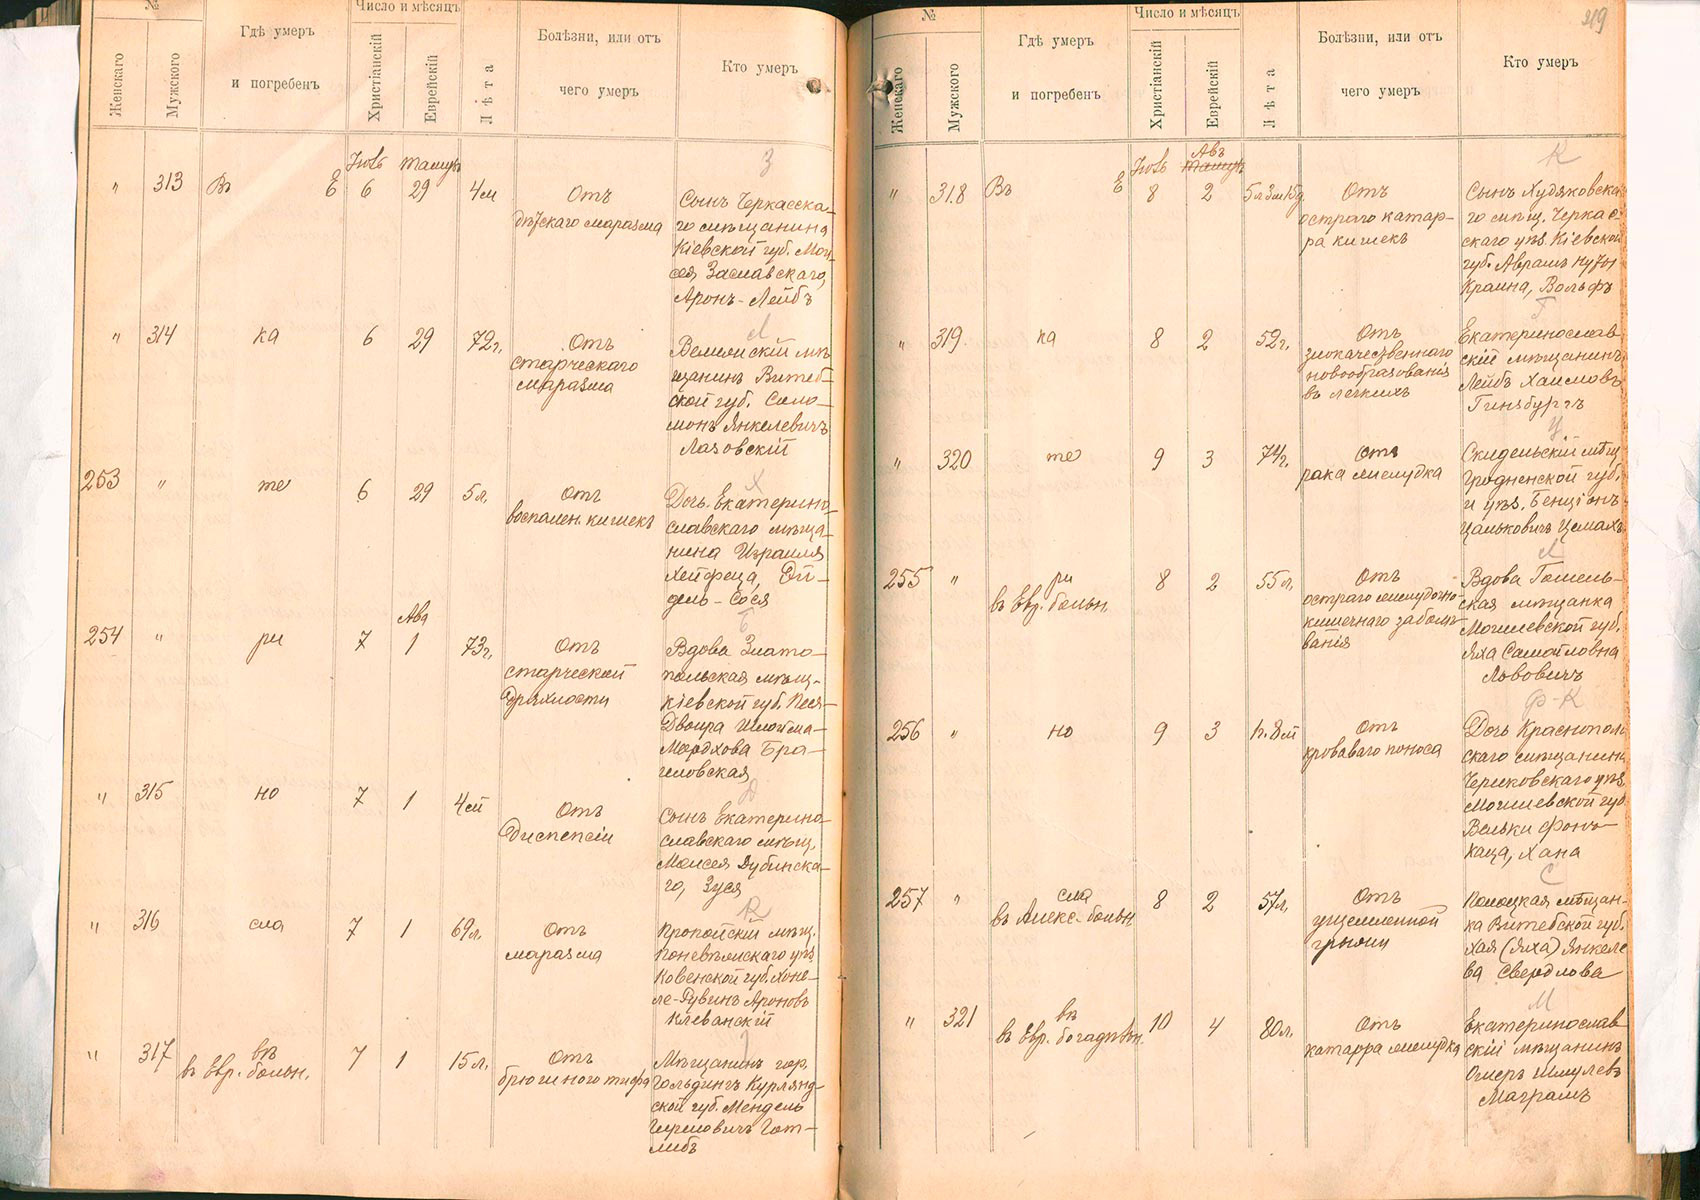 №
Женскаго
Мужского
Гдѣ умеръ
и погребенъ
Число и мѣсяцъ
Христіанскій
Еврейскій
Лѣта
Болѣзни, или отъ
чего умеръ
Кто умеръ
Іюль Тамузъ
З
" 313 Въ Е 6 29 4 м
Отъ
дѣтскаго маразма
Сынъ Черкасска-
го мѣщанина
Кіевской губ. Мои-
сея Заславскаго,
Аронъ-Лейбъ
Л
" 314 ка 6 29 72 г.
Отъ
старческаго
маразма
Велижскій мѣ
щанинъ Витеб-
ской губ. Соло-
монъ Янкелевичъ
Лазовскій
Х
253 " те 6 29 5 л.
Отъ
воспален. кишекъ
Дочь Екатерино-
славскаго мѣща-
нина Израиля
Хейфеца, Эй-
дель-Сося
Ава
Б
254 " ри 7 1 73 г.
Отъ
старческой
дряхлости
Вдова Злато-
польская мѣщ.
Кіевской губ. Песя-
Двоира Шлойма-
Мордхова Бра-
гиловская
Д
" 315 но 7 1 4 м
Отъ
Диспепсіи
Сынъ Екатерино-
славскаго мѣщ.
Моисея Дубинска-
го, Зуся
К
" 316 сла 7 1 69 л.
Отъ
маразма
мѣщ.
Поневѣжскаго уѣз
Ковенской губ. Хоне-
ле-Рувинъ Ароновъ
Клеванскій
" 317 вѣ
въ Евр. больн.
7 1 15 л.
Отъ
брюшного тифа
Мѣщанинъ гор.
Гольдингъ Курлянд-
ской губ. Мендель
Гиршовичъ Гот-
либъ
219
№
Женскаго
Мужского
Гдѣ умеръ
и погребенъ
Число и мѣсяцъ
Христіанскій
Еврейскій
Лѣта
Болѣзни, или отъ
чего умеръ
Кто умеръ
Авъ
Іюль Тамузъ
К
" 318 Въ Е 8 2 5 л 3 м 15 д
Отъ
остраго катар-
ра кишекъ
Сынъ Худяковска-
го мѣщ. Черкас-
скаго уѣз. Кіевской
губ. Аврамъ Нухы
Краина, Вольфъ
Г
" 319 ка 8 2 52 г.
Отъ
злокачественнаго
новообразованія
въ легкихъ
Екатеринослав-
скій мѣщанинъ
Лейбъ Хаимовъ
Гинзбургъ
Ц
" 320 те 9 3 74 г.
Отъ
рака желудка
Скидельскій мѣщ
Гродненской губ.
и уѣз. Бенціонъ
Цальковичъ Цемахъ
Л
255 " ри
въ Евр. больн.
8 2 55 л.
Отъ
остраго желудочно-
кишечнаго заболѣ-
ванія
Вдова Гомель-
ская мѣщанка
Могилевской губ.
Яха Самойловна
Львовичъ
Ф-К
256 " но 9 3 1 г. 8 м
Отъ
кроваваго поноса
Дочь Краснополь
скаго мѣщанина
Чериковскаго уѣз
Могилевской губ
Вельки Фонъ-
Каца, Хана
С
257 " сла
въ Алекс. больн.
8 2 57 л.
Отъ
ущемленной
грыжи
Полоцкая мѣщан-
ка Витебской губ.
Хая (Яха) Янкеле
ва Свердлова
М
" 321 вѣ
въ Евр. богадѣльн.
10 4 80 л.
Отъ
катарра желудка
Екатеринослав
скій мѣщанинъ
Ошеръ Шмулевъ
Маграмъ